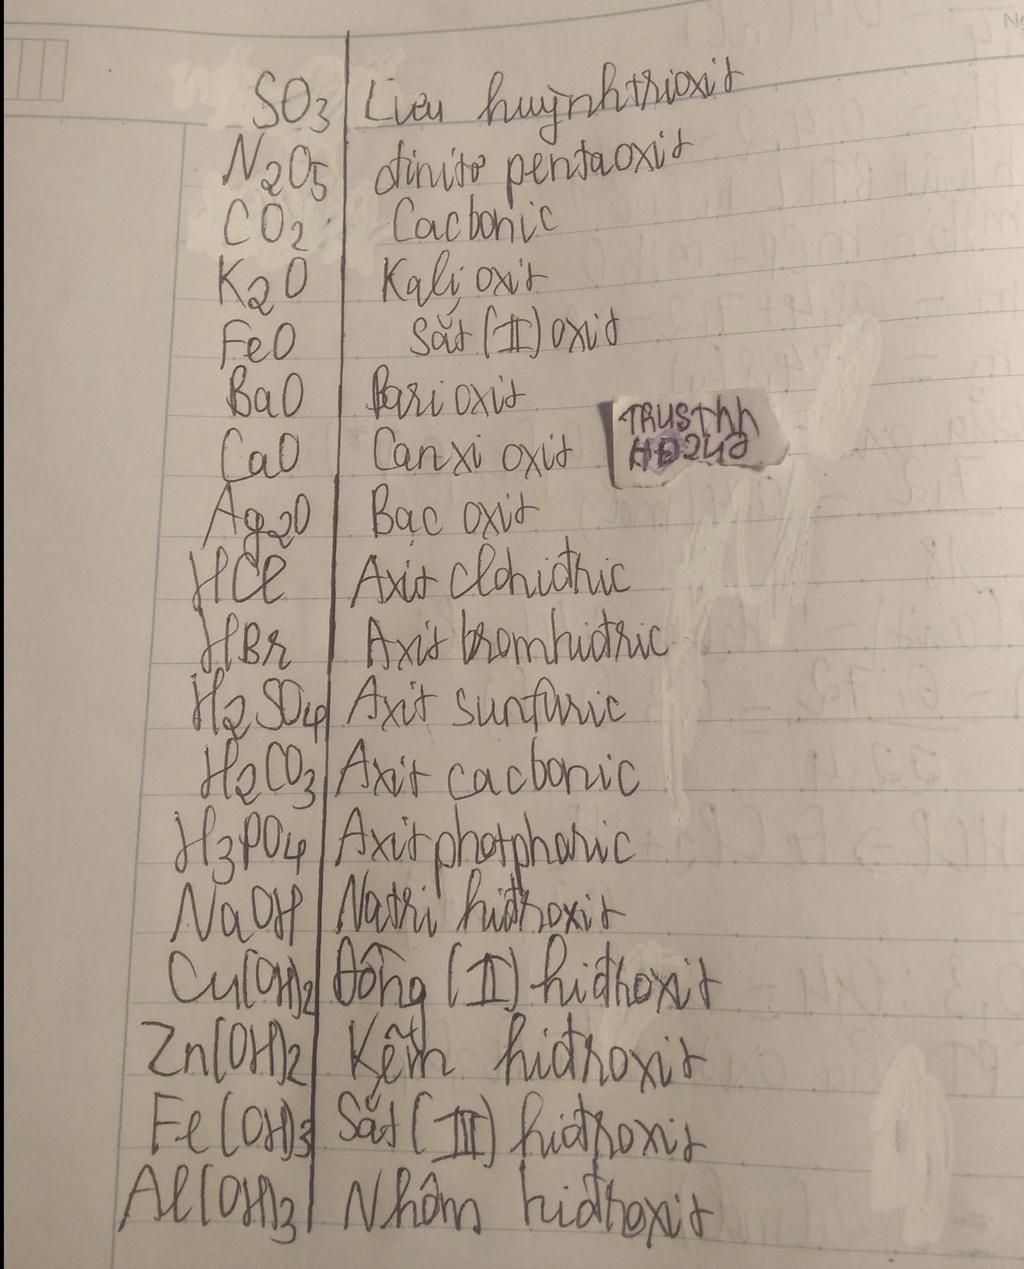 SO3 Lưu huỳnh trioxit
N2O5 đinitơ pentaoxit
CO2 Cacbonic
K2O Kali oxit
FeO Sắt (II) oxit
BaO Bari oxit
CaO Canxi oxit
TRUSThh
HD248
Ag2O Bạc oxit
HCl Axit clohiđric
HBr Axit bromhiđric
H2SO4 Axit sunfuric
H2CO3 Axit cacbonic
H3PO4 Axit photphoric
NaOH Natri hiđroxit
Cu(OH)2 Đồng (II) hiđroxit
Zn(OH)2 Kẽm hiđroxit
Fe(OH)3 Sắt (III) hiđroxit
Al(OH)3 Nhôm hiđroxit